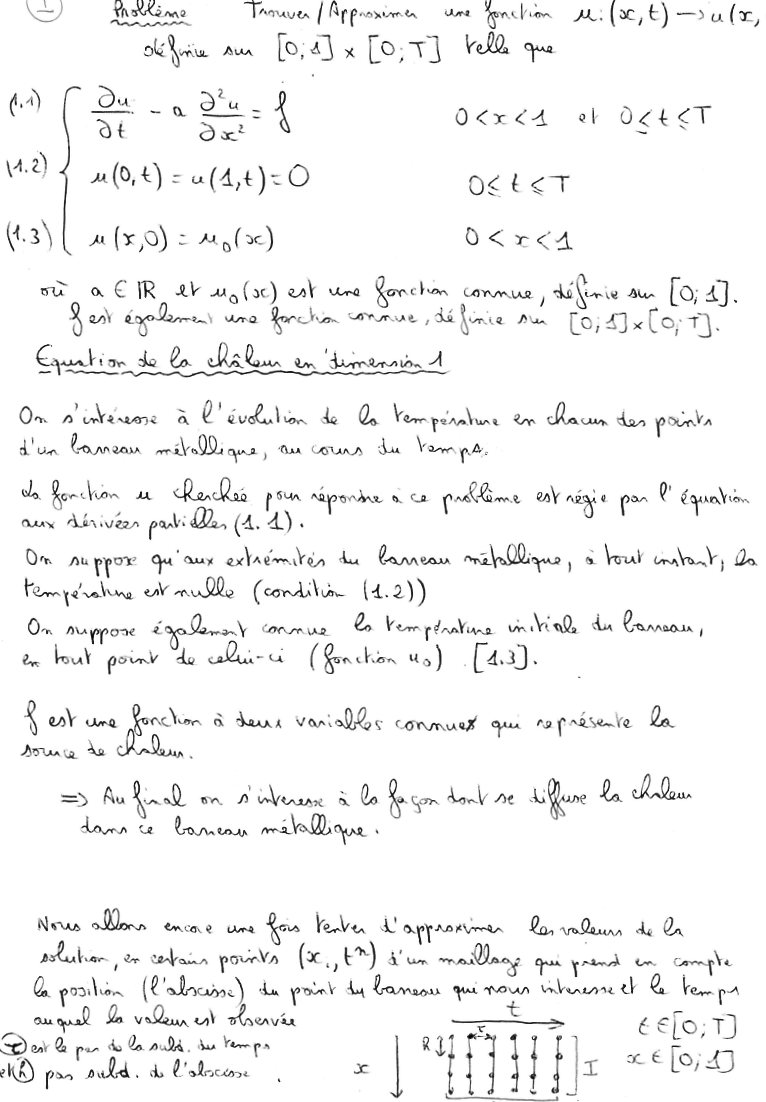 1 Problème Trouver/Approximer une fonction u: (x,t) → u(x,
définie sur [0;1] × [0;T] telle que
(1.1) ∂u/∂t - a ∂²u/∂x² = f 0<x<1 et 0≤t≤T
(1.2) u(0,t) = u(1,t) = 0 0≤t≤T
(1.3) u(x,0) = u₀(x) 0<x<1
où a ∈ ℝ et u₀(x) est une fonction connue, définie sur [0;1].
f est également une fonction connue, définie sur [0;1]×[0;T].
Equation de la châleur en dimension 1
On s'intéresse à l'évolution de la température en chacun des points
d'un barreau métallique, au cours du temps.
La fonction u cherchée pour répondre à ce problème est régie par l'équation
aux dérivées partielles (1.1).
On suppose qu'aux extrémités du barreau métallique, à tout instant, la
température est nulle (condition (1.2))
On suppose également connue la température initiale du barreau,
en tout point de celui-ci (fonction u₀) [1.3].
f est une fonction à deux variables connues qui représente la
source de chaleur.
=> Au final on s'interesse à la façon dont se diffuse la chaleur
dans ce barreau métallique.
Nous allons encore une fois tenter d'approximer les valeurs de la
solution, en certains points (xᵢ, tⁿ) d'un maillage qui prend en compte
la position (l'abscisse) du point du barreau qui nous interesse et le temps
auquel la valeur est observée
τ est le pas de la subd. du temps
et h pas subd. de l'abscisse.
t
τ
h
x
I
t ∈ [0;T]
x ∈ [0;1]